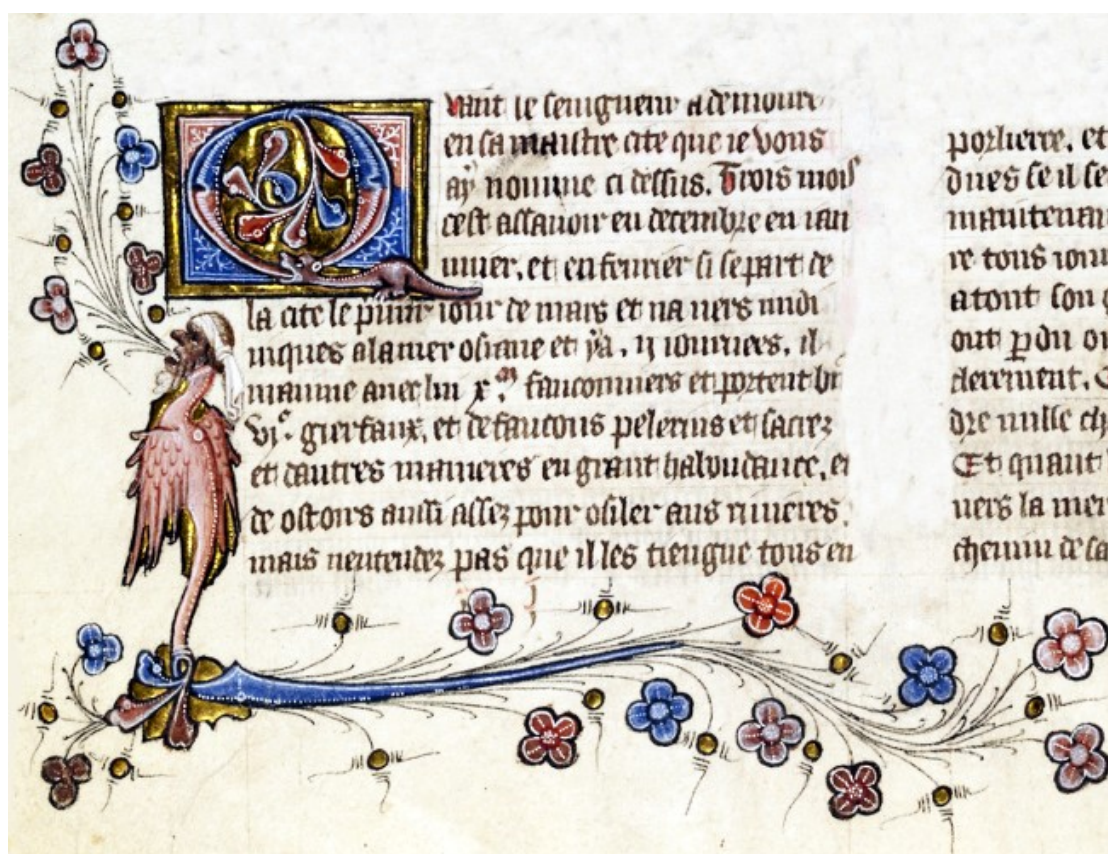 Quant le seingneur a demoure
en sa maistre cite que ie vous
ay nomme ci dessus. Trois mois
cest assauoir en decembre en ian
uuier. et en feurier si se part de
la cite le prim iour de mars et na uers midi
iusques a la mer osiane et y a . ij iournees . il
mainne auec lui x.m fauconniers et portent bn
vj.c gierfaux. et de faucons pelerins et sacrez
et dautres manieres en grant habondance. et
de ostours aussi assez pour oiseler aus riuieres.
mais nentendez pas que il les tiengne tous en
por lierre. et
dues se il se
maintenan
re tous iour
a tout son
ont perdu ou
clerement.
dre mille ch
Et quant
uers la mer
chemin de ca